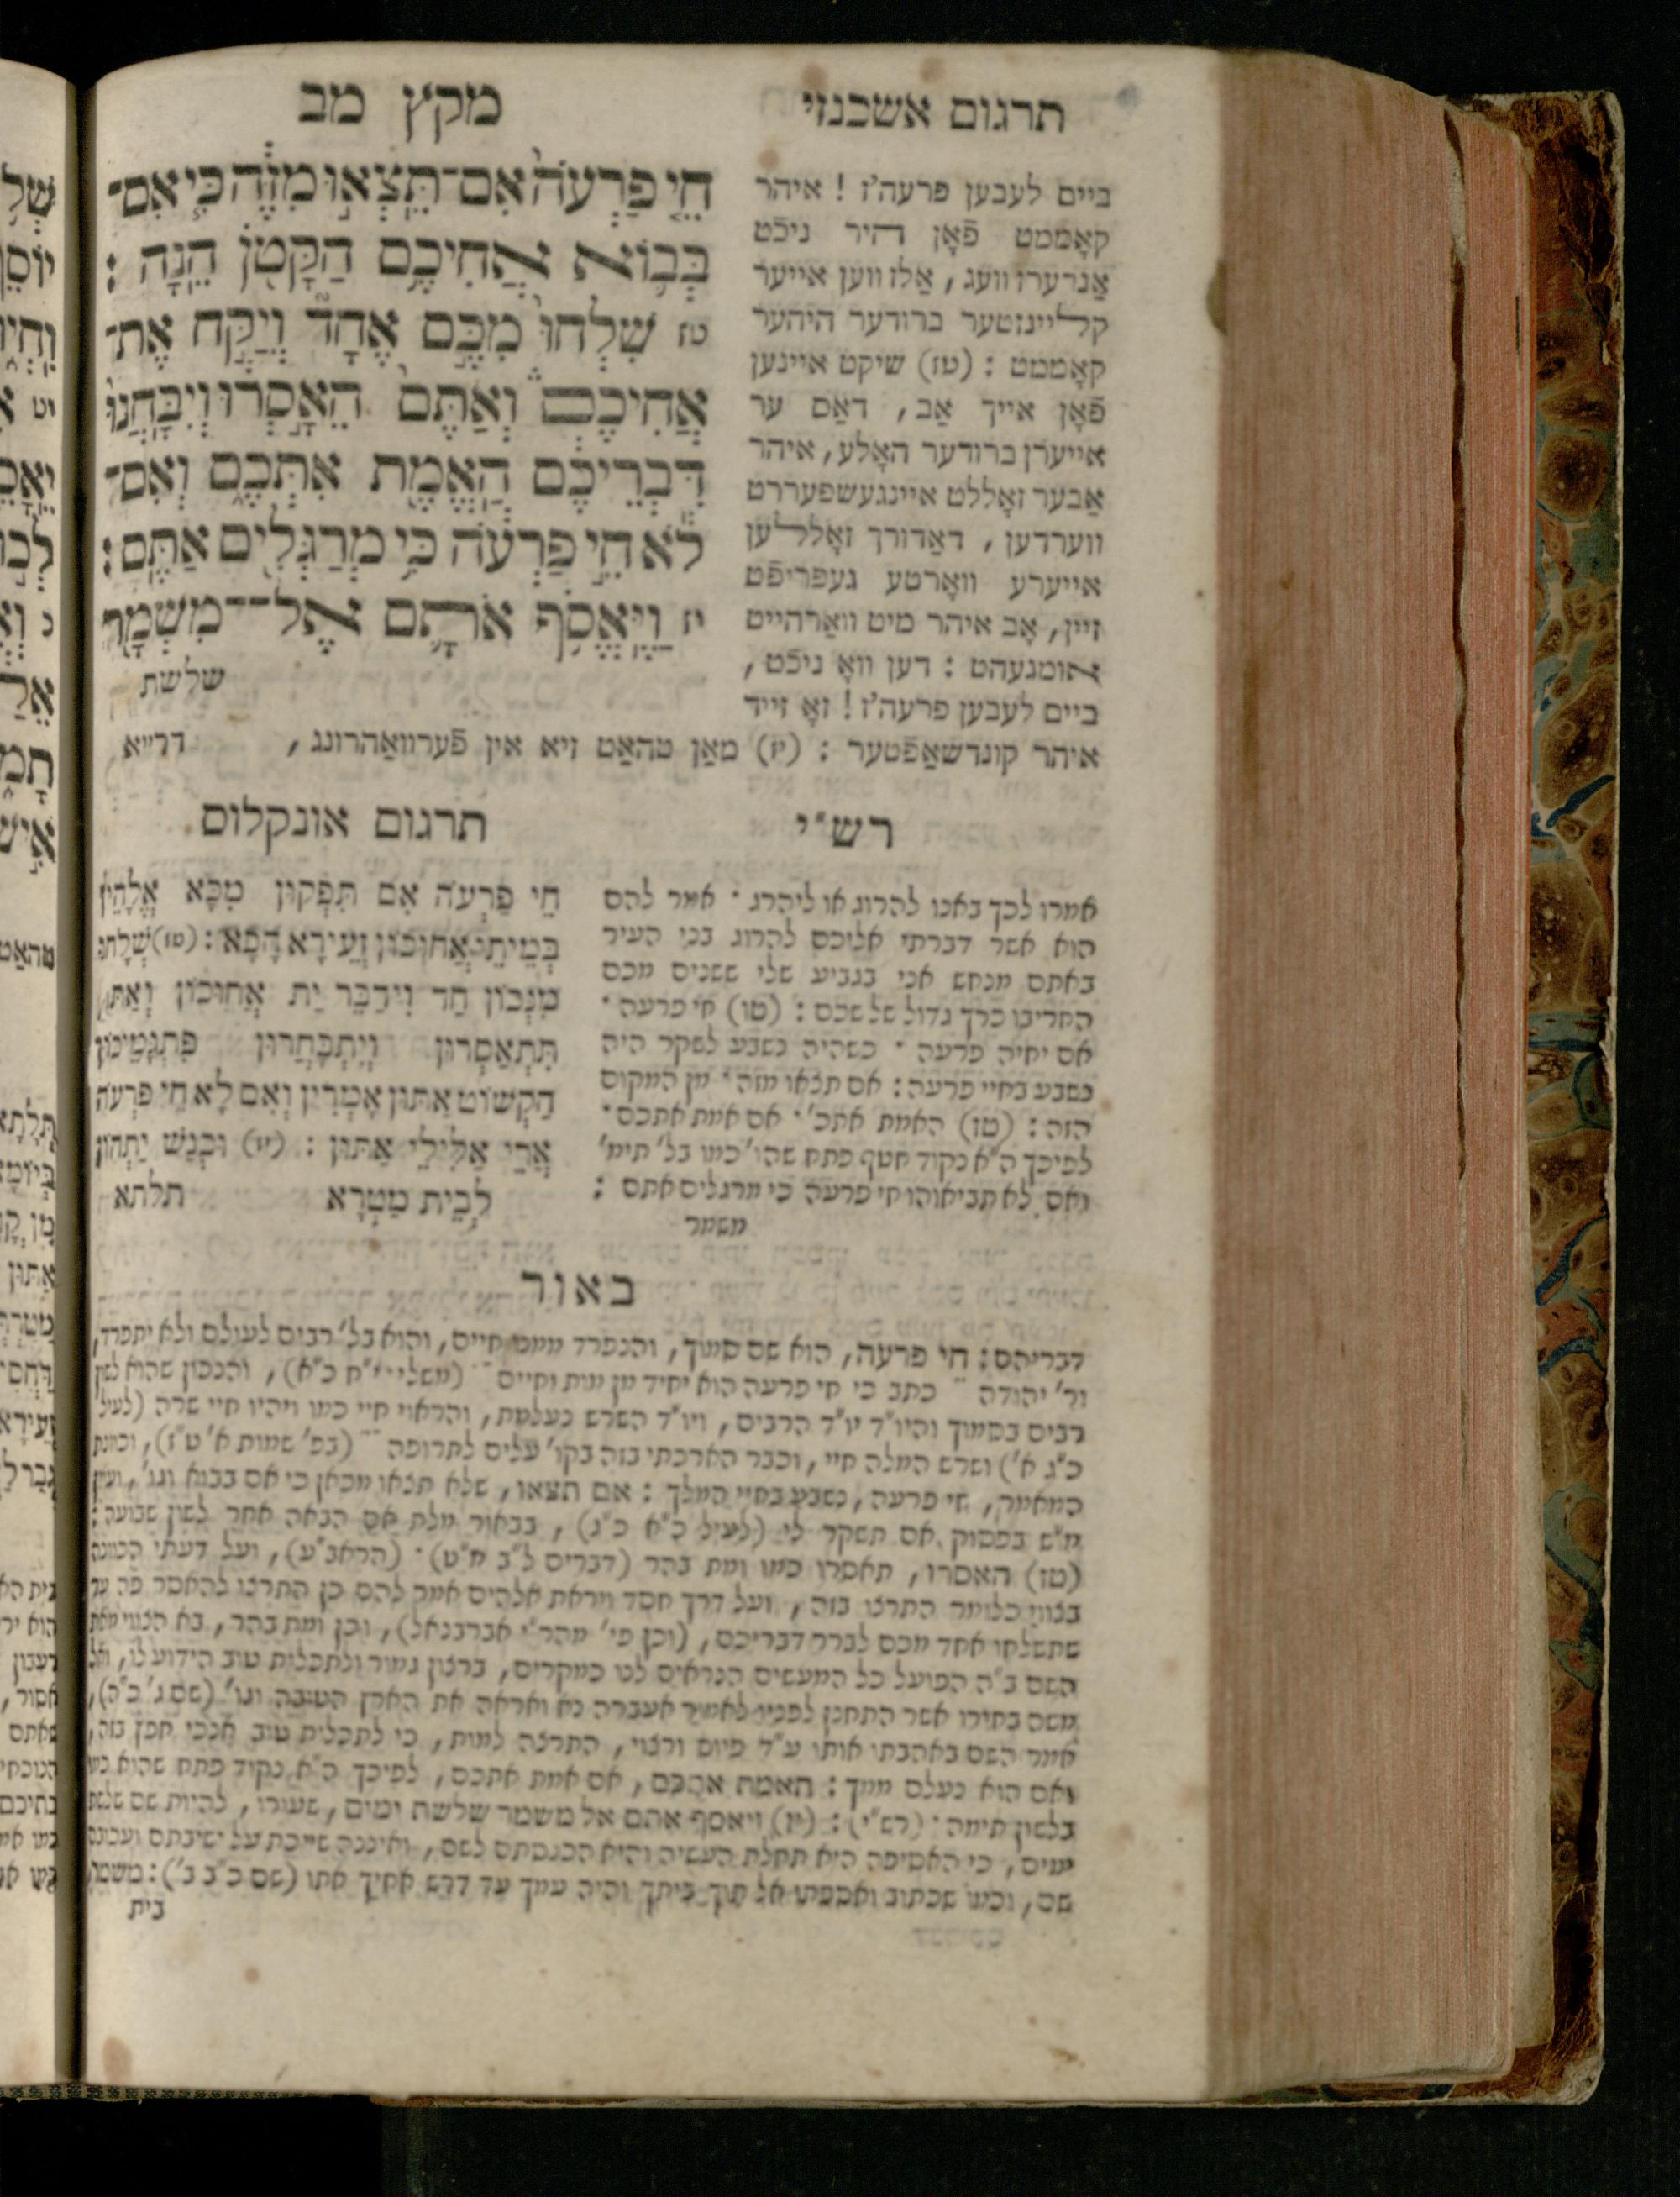 תרגום אשכנזי
מקץ מב
חֵי פַרְעֹה אִם־תֵּצְאוּ מִזֶּה כִּי אִם־
בְּבוֹא אֲחִיכֶם הַקָּטֹן הֵנָּה :
טז שִׁלְחוּ מִכֶּם אֶחָד וְיִקַּח אֶת־
אֲחִיכֶם וְאַתֶּם הֵאָסְרוּ וְיִבָּחֲנוּ
דִּבְרֵיכֶם הַאֱמֶת אִתְּכֶם וְאִם־
לֹא חֵי פַרְעֹה כִּי מְרַגְּלִים אַתֶּם :
יז וַיֶּאֱסֹף אֹתָם אֶל־מִשְׁמָר
שלשת
ביים לעבען פרעה'ז ! איהר
קאָממט פֿאָן היר ניכֿט
אַנדערז וועג , אַלז ווען אייער
קליינזטער ברודער היהער
קאָממט : (טז) שיקט איינען
פֿאָן אייך אַב , דאַס ער
אייערן ברודער האָלע , איהר
אַבער זאָללט איינגעשפעררט
ווערדען , דאַדורך זאָללען
אייערע וואָרטע געפריפֿט
זיין , אָב איהר מיט וואַרהייט
אומגעהט : דען וואָ ניכֿט ,
ביים לעבען פרעה'ז ! זאָ זייד
איהר קונדשאַפֿטער : (יז) מאַן טהאַט זיא אין פֿערוואַהרונג ,
דרייא
רש"י
אמרו לכך באנו להרוג או ליהרג · אמר להם
הוא אשר דברתי אליכם להרוג בני העיר
באתם מנחש אני בגביע שלי ששנים מכם
החריבו כרך גדול של שכם : (טו) חי פרעה ·
אם יחיה פרעה · כשהיה נשבע לשקר היה
נשבע בחיי פרעה : אם תצאו מזה · מן המקום
הזה : (טז) האמת אתכ' · אם אמת אתכם ·
לפיכך ה"א נקוד חטף פתח שהו' כמו בל' תימ'
ואם לא תביאוהו חי פרעה כי מרגלים אתם :
משמר
תרגום אונקלוס
חֵי פַרְעֹה אִם תִּפְּקוּן מִכָּא אֱלָהֵין
בְּמֵיתֵי אֲחוּכוֹן זְעֵירָא הָכָא : (טז) שְׁלָחוּ
מִנְּכוֹן חַד וְיִדְבַּר יָת אֲחוּכוֹן וְאַתּוּן
תִּתְאַסְרוּן וְיִתְבַּחֲרוּן פִּתְגָמֵיכוֹן
הַקְשׁוֹט אַתּוּן אָמְרִין וְאִם לָא חֵי פַרְעֹה
אֲרֵי אַלִּילֵי אַתּוּן : (יז) וּכְנַשׁ יָתְהוֹן
לְבֵית מַטְּרָא
תלתא
באור
דבריהם : חי פרעה , הוא שם סמוך , והנפרד ממנו חיים , והוא בל' רבים לעולם ולא יתפרד ,
ור' יהודה כתב כי חי פרעה הוא יחיד מן מות וחיים (משלי י"ח כ"א) , והנכון שהוא לשון
רבים בסמוך והיו"ד יו"ד הרבים , ויו"ד השרש נעלמת , והראוי חיי כמו ויהיו חיי שרה (לעיל
כ"ג א') ושרש המלה חיי , וכבר הארכתי בזה בקו' עלים לתרופה (בפ' שמות א' ט"ז) , וכוונת
המאמר , חי פרעה , נשבע בחיי המלך : אם תצאו , שלא תצאו מכאן כי אם בבוא וגו' , ועיין
מ"ש בפסוק אם תשקר לי (לעיל כ"א כ"ג) , בבאור מלת אם הבאה אחר לשון שבועה :
(טז) האסרו , תאסרו כמו ומת בהר (דברים ל"ב מ"ט) · (הראב"ע) , ועל דעתי הכוונה
בצווי כלומר התרצו בזה , ועל דרך חסד ויראת אלהים אמר להם כן התרצו להאסר פה עד
שתשלחו אחד מכם לברר דבריכם , (וכן פי' מהר"י אברבנאל) , וכן ומת בהר , בא הצווי מאת
השם ב"ה הפועל כל המעשים הנראים לנו כמקרים , ברצון גמור ולתכלית טוב הידוע לו , ואל
משה בחירו אשר התחנן לפניו לאמר אעברה נא ואראה את הארץ הטובה וגו' (שם ג' כ"ה) ,
אמר השם באהבתו אותו ע"ד פיוס ורצוי , התרצה למות , כי לתכלית טוב אנכי חפץ בזה ,
ואם הוא נעלם ממך : האמת אתכם , אם אמת אתכם , לפיכך ה"א נקוד פתח שהוא כמו
בלשון תימה · (רש"י) : (יז) ויאסף אתם אל משמר שלשת ימים , שעורו , להיות שם שלשת
ימים , כי האסיפה היא תחלת העשיה והיא הכנסתם לשם , ואיננה שייכת על ישיבתם ועכובם
שם , וכמו שכתוב ואספתו אל תוך ביתך והיה עמך עד דרש אחיך אתו (שם כ"ב ב') : משמר ,
בית